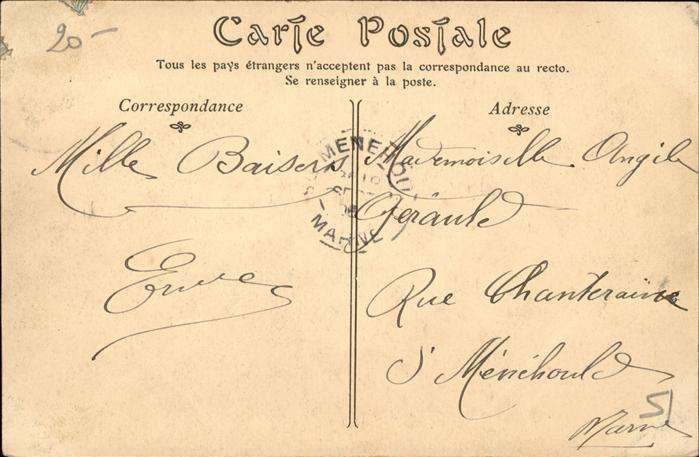 20-
Carte Postale
Tous les pays étrangers n'acceptent pas la correspondance au recto.
Se renseigner à la poste.
Correspondance
Mille Baisers
Adresse
Mademoiselle Angèle
Gérault
Rue Chanteraine
St Ménéhould
Marne
MENEHOU
MARNE